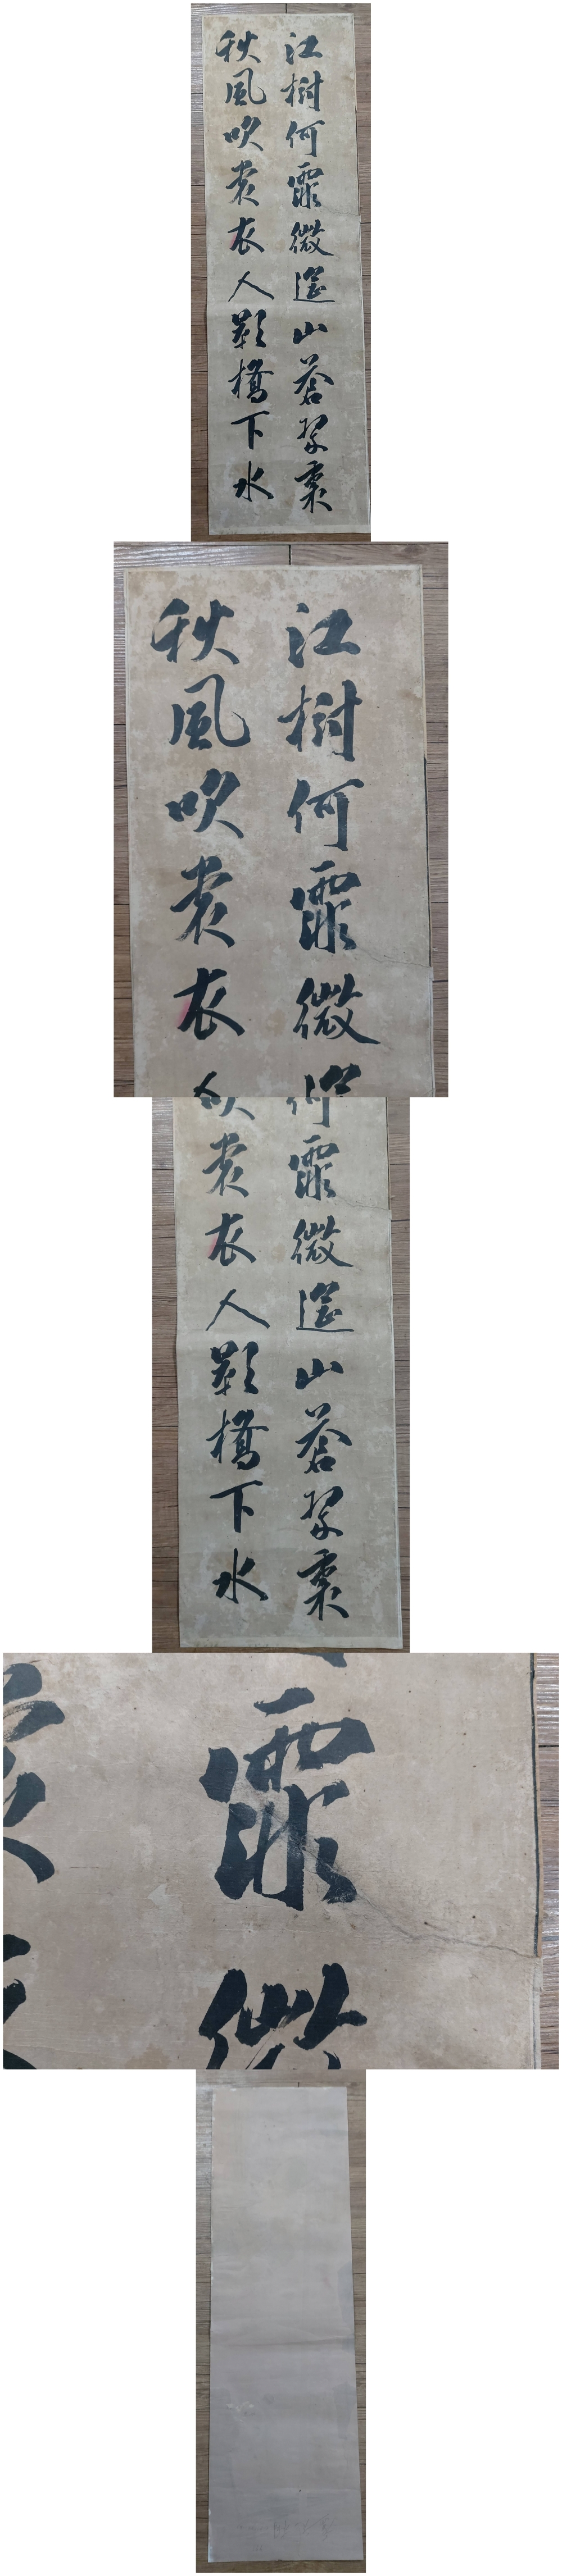 江樹何霏微遙山蒼翠裏
秋風吹裳衣人影橋下水
江樹何霏微
秋風吹裳衣
霏微遙山蒼翠裏
裳衣人影橋下水
霏微